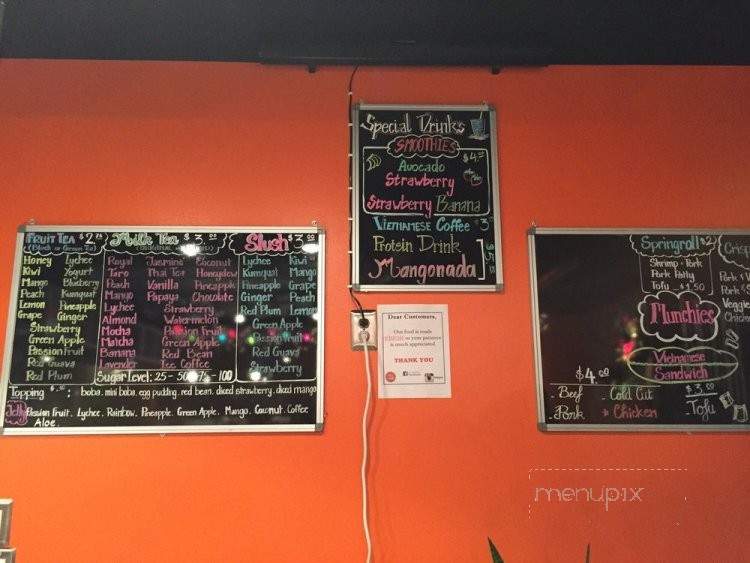 FRUIT TEA $2.75 Milk Tea $3.00 Slush $3.00
(Black or Green Tea)
Honey Lychee Royal Jasmine Coconut Lychee Kiwi
Kiwi Yogurt Taro Thai Tea Honeydew Kumquat Mango
Mango Blueberry Peach Vanilla Pineapple Pineapple Grape
Peach Kumquat Mango Papaya Chocolate Ginger Peach
Lemon Pineapple Lychee Strawberry Red Plum Lemon
Grape Ginger Almond Watermelon Honeydew
Strawberry Mocha Passion Fruit Green Apple
Green Apple Matcha Green Apple Passion Fruit
Passion Fruit Banana Red Bean Red Guava
Red Guava Lavender Ice Coffee Strawberry
Red Plum Sugar Level: 25 - 50 - 75 - 100
Topping : boba, mini boba, egg pudding, red bean, diced strawberry, diced mango
Jelly Passion Fruit, Lychee, Rainbow, Pineapple, Green Apple, Mango, Coconut, Coffee
Aloe.
Special Drinks
SMOOTHIES
Avocado
Strawberry
Strawberry Banana
Vietnamese Coffee $3
Protein Drink
Mangonada
Dear Customers,
Our food is made
FRESH so your patience
is much appreciated.
THANK YOU
Springroll $2
Shrimp & Pork
Pork Patty
Tofu - $1.50
Crisp
Pork
Veggie
Chicken
Munchies
Vietnamese
Sandwich
$4.00
- Beef - Cold Cut
- Pork * Chicken
$3.00
- Tofu
menupix